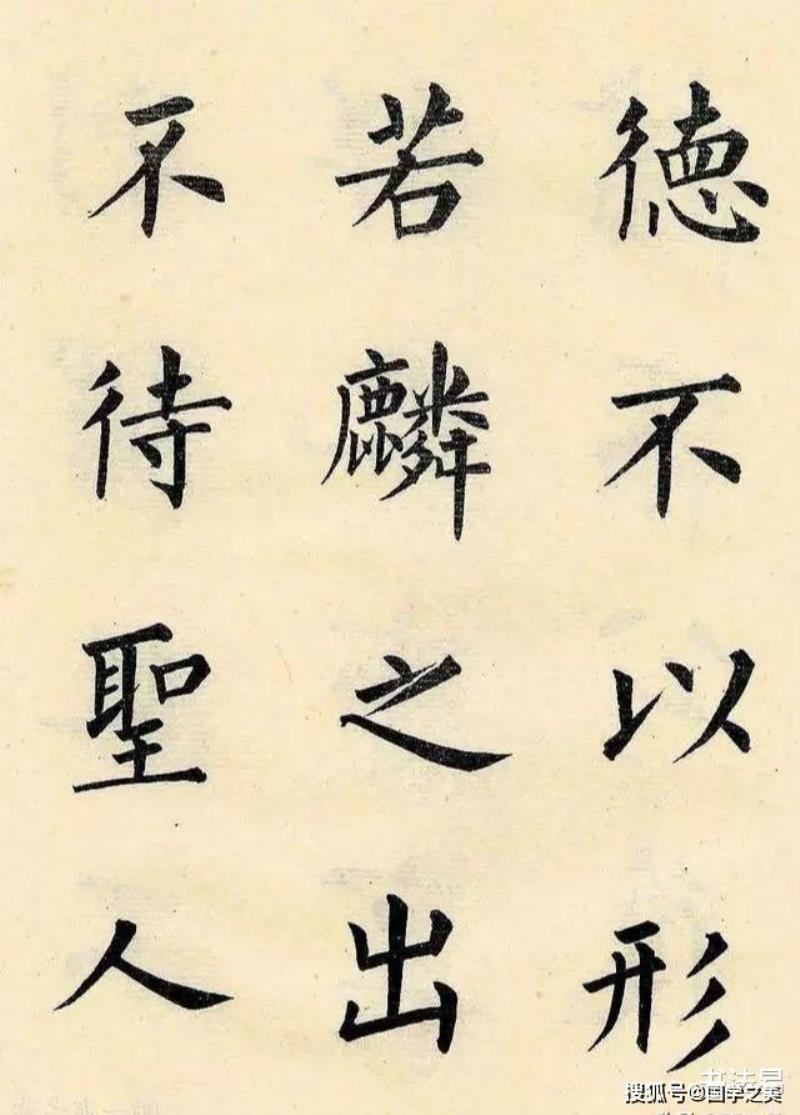 德不以形
若麟之出
不待聖人
搜狐号@国学之美